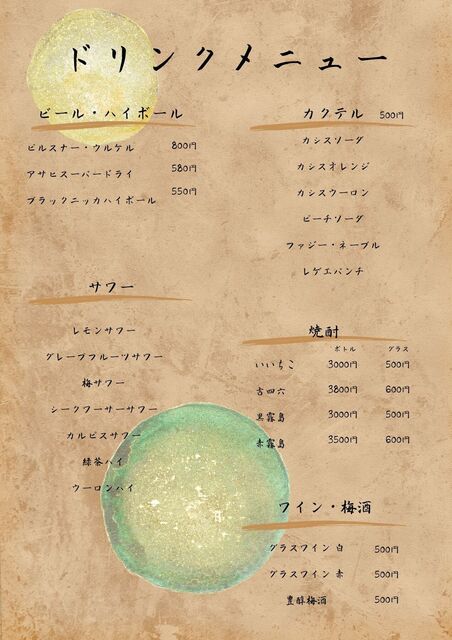 ドリンクメニュー
ビール・ハイボール
ピルスナー・ウルケル 800円
アサヒスーパードライ 580円
ブラックニッカハイボール 550円
サワー
レモンサワー
グレープフルーツサワー
梅サワー
シークワーサーサワー
カルピスサワー
緑茶ハイ
ウーロンハイ
カクテル 500円
カシスソーダ
カシスオレンジ
カシスウーロン
ピーチソーダ
ファジー・ネーブル
レゲエパンチ
焼酎
ボトル グラス
いいちこ 3000円 500円
吉四六 3800円 600円
黒霧島 3000円 500円
赤霧島 3500円 600円
ワイン・梅酒
グラスワイン 白 500円
グラスワイン 赤 500円
豊醇梅酒 500円